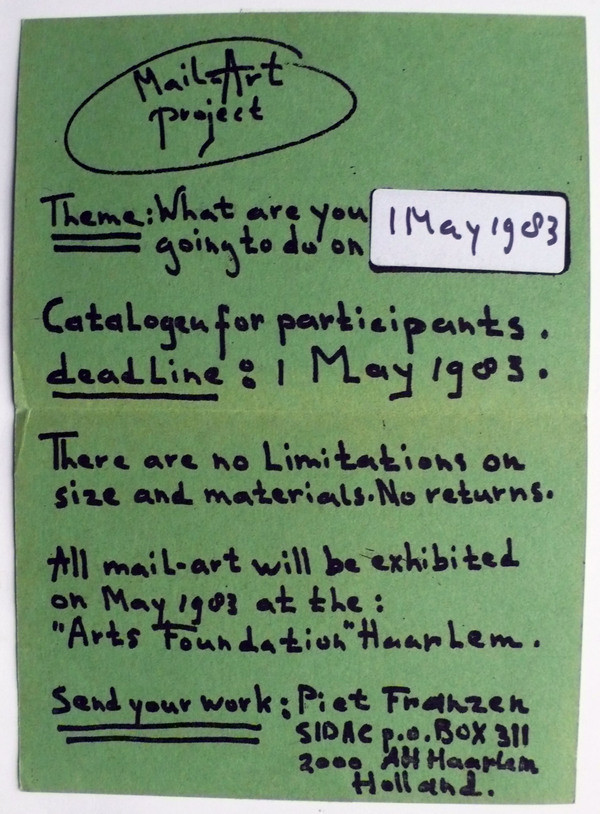 Mail-Art
project
Theme: What are you
going to do on 1 May 1983
Catalogeu for participants.
deadline: 1 May 1983.
There are no Limitations on
size and materials. No returns.
All mail-art will be exhibited
on May 1983 at the:
"Arts Foundation" Haarlem.
Send your work: Piet Franzen
SIDAC p.o. BOX 311
2000 AH Haarlem
Holland.